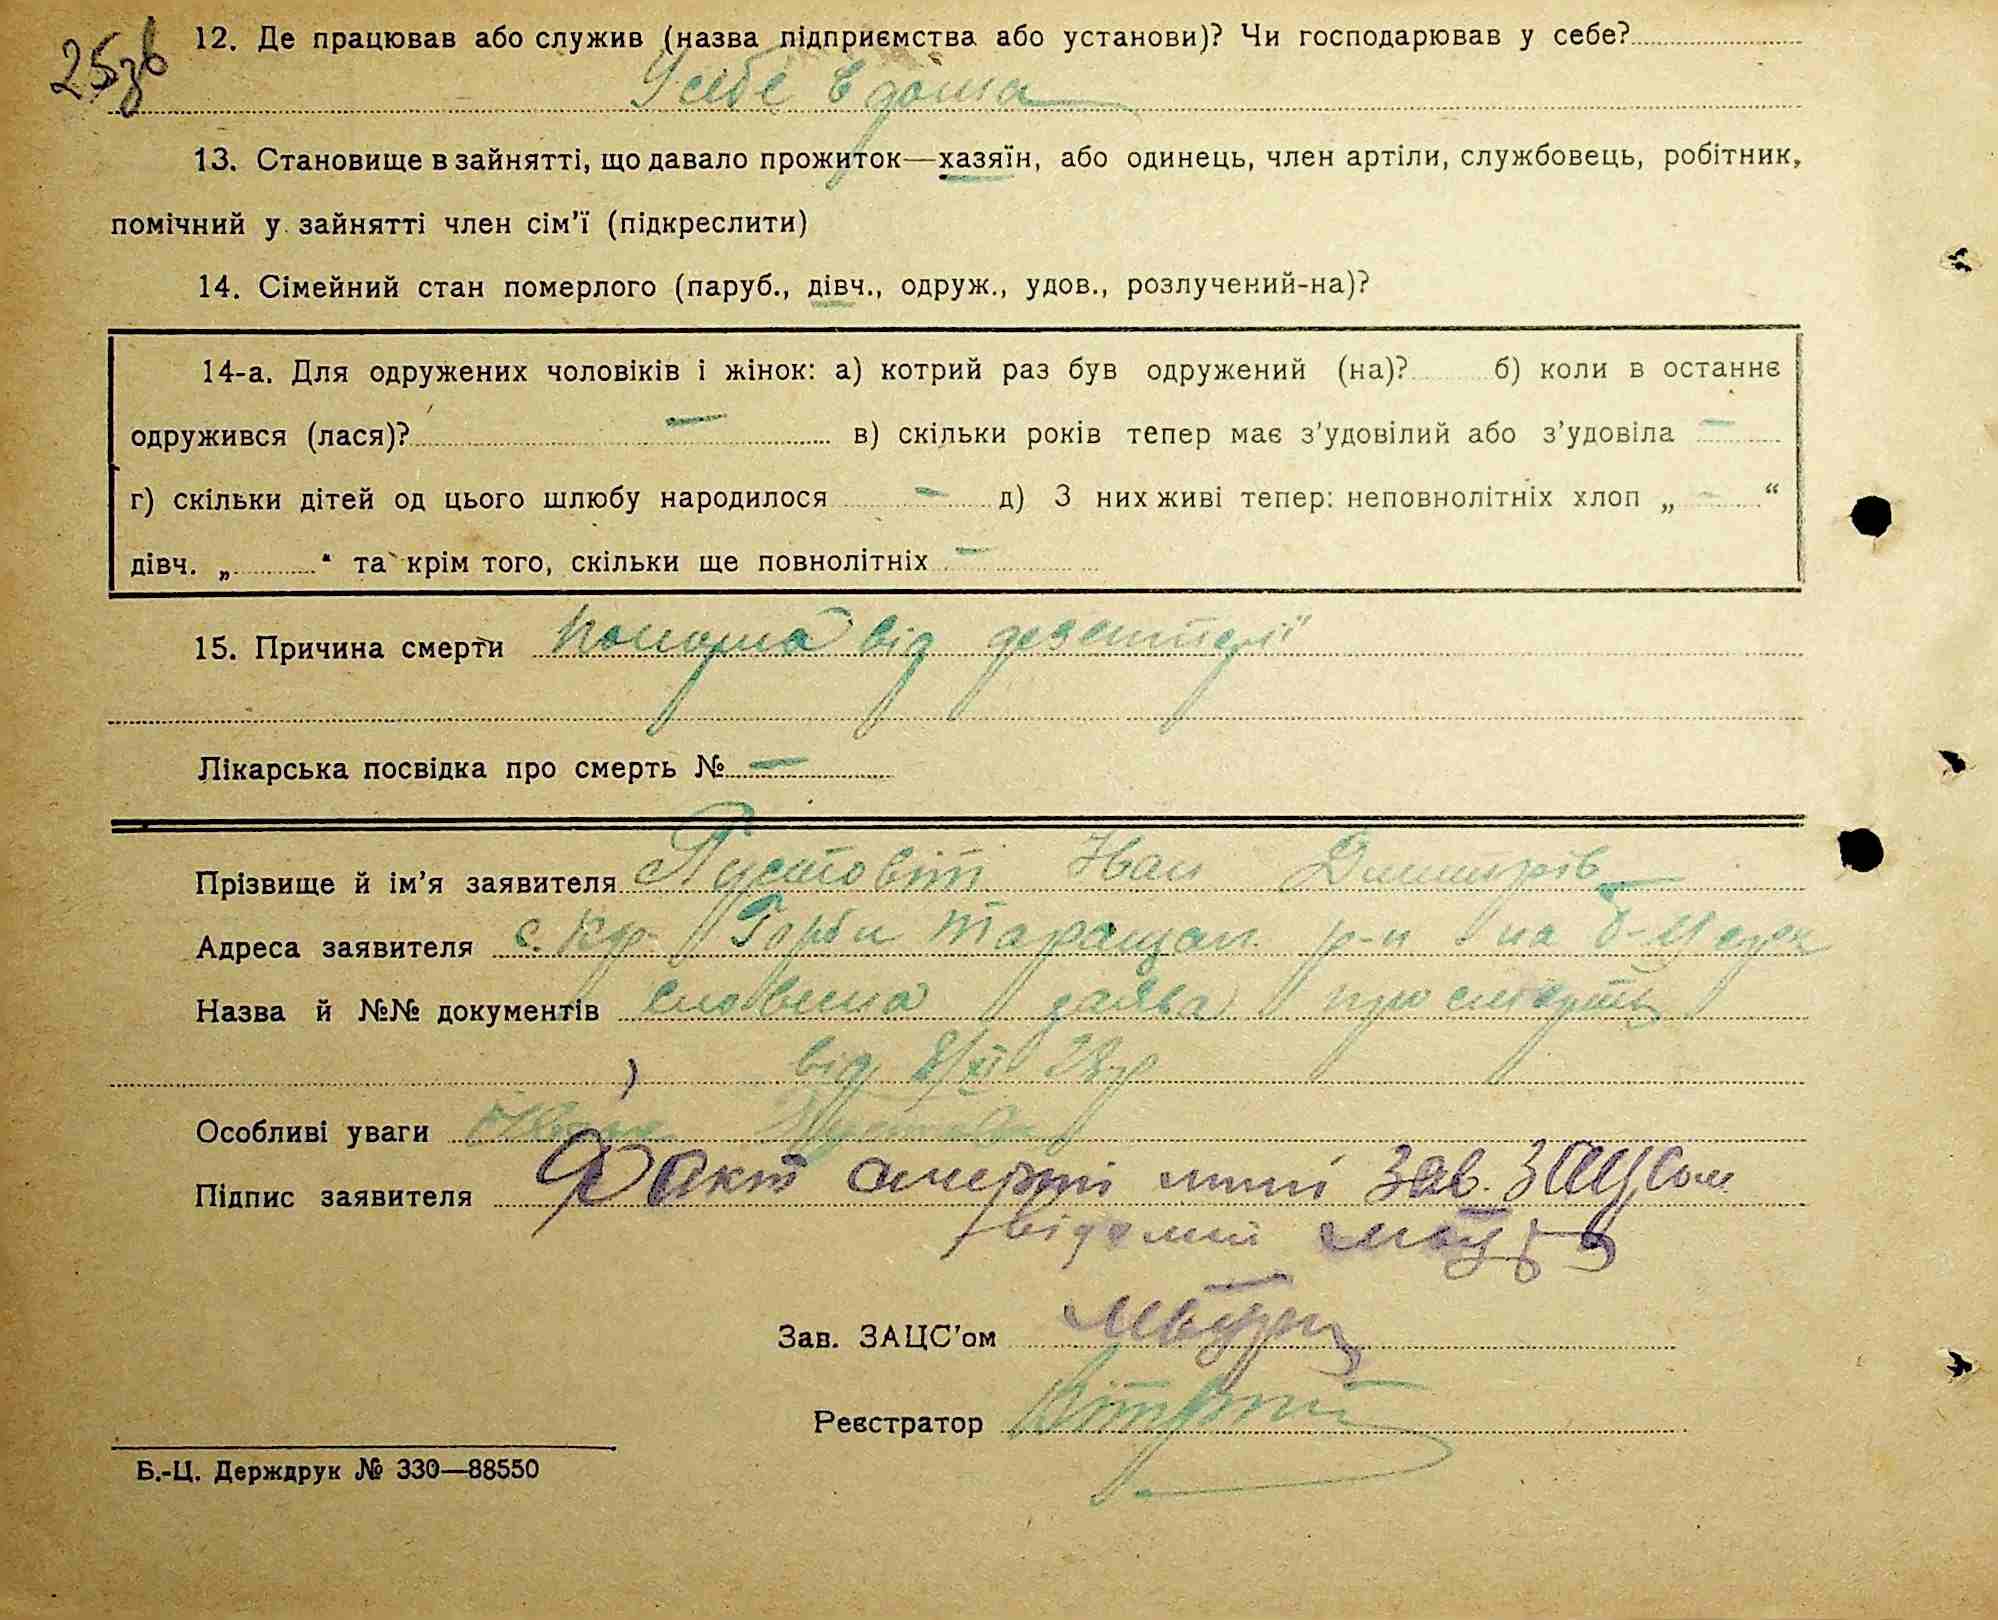 25зв
12. Де працював або служив (назва підприємства або установи)? Чи господарював у себе?
У себе в дома
13. Становище в зайнятті, що давало прожиток—хазяїн, або одинець, член артіли, службовець, робітник,
помічний у зайнятті член сім’ї (підкреслити)
14. Сімейний стан померлого (паруб., дівч., одруж., удов., розлучений-на)?
14-а. Для одружених чоловіків і жінок: а) котрий раз був одружений (на)? б) коли в останнє
одружився (лася)? — в) скільки років тепер має з’удовілий або з’удовіла —
г) скільки дітей од цього шлюбу народилося — д) З них живі тепер: неповнолітніх хлоп „ — “
дівч. „ “ та крім того, скільки ще повнолітніх —
15. Причина смерти померла від дезентерії
Лікарська посвідка про смерть № —
Прізвище й ім’я заявителя Пустовіт Іван Дмитрів
Адреса заявителя с. Кр. Горби Таращан. р-н на Б-Церк
Назва й №№ документів словесна заява про смерть
від 8/XI 28р
Особливі уваги
Підпис заявителя Факт смерті мині Зав. ЗАЦСом
відомий
Зав. ЗАЦС’ом
Реєстратор
Б.-Ц. Держдрук № 330—88550